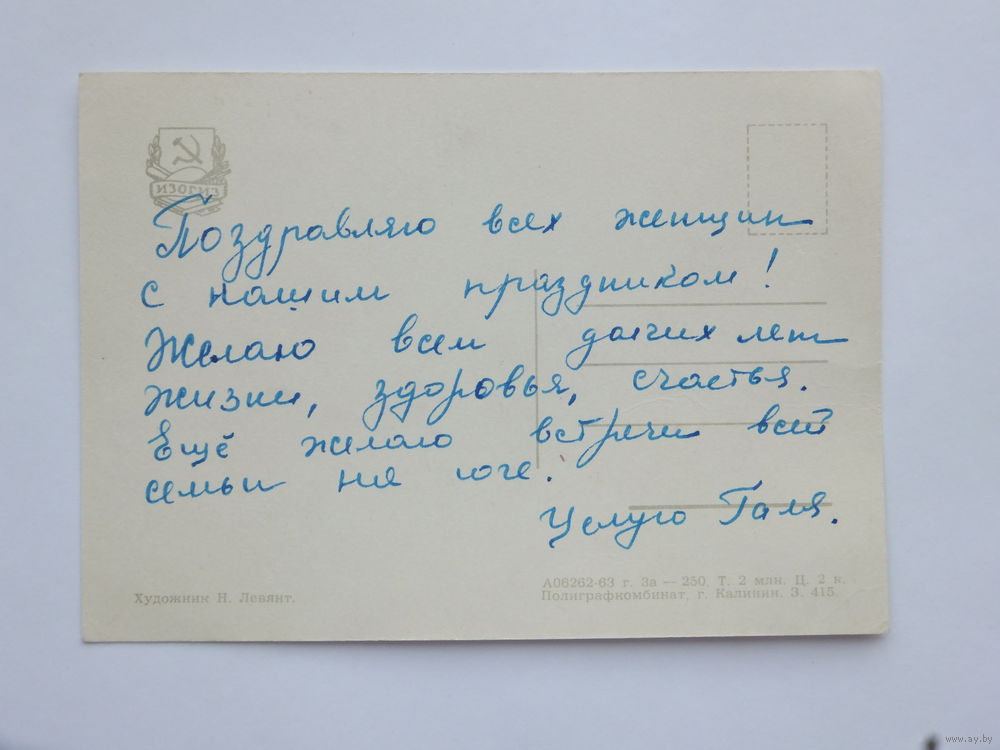 ИЗОГИЗ
Поздравляю всех женщин
с нашим праздником!
Желаю всем долгих лет
жизни, здоровья, счастья.
Ещё желаю встречи всей
семьи на юге.
Целую Галя.
Художник Н. Левянт.
А06262-63 г. За — 250. Т. 2 млн. Ц. 2 к.
Полиграфкомбинат, г. Калинин. З. 415.
www.ay.by